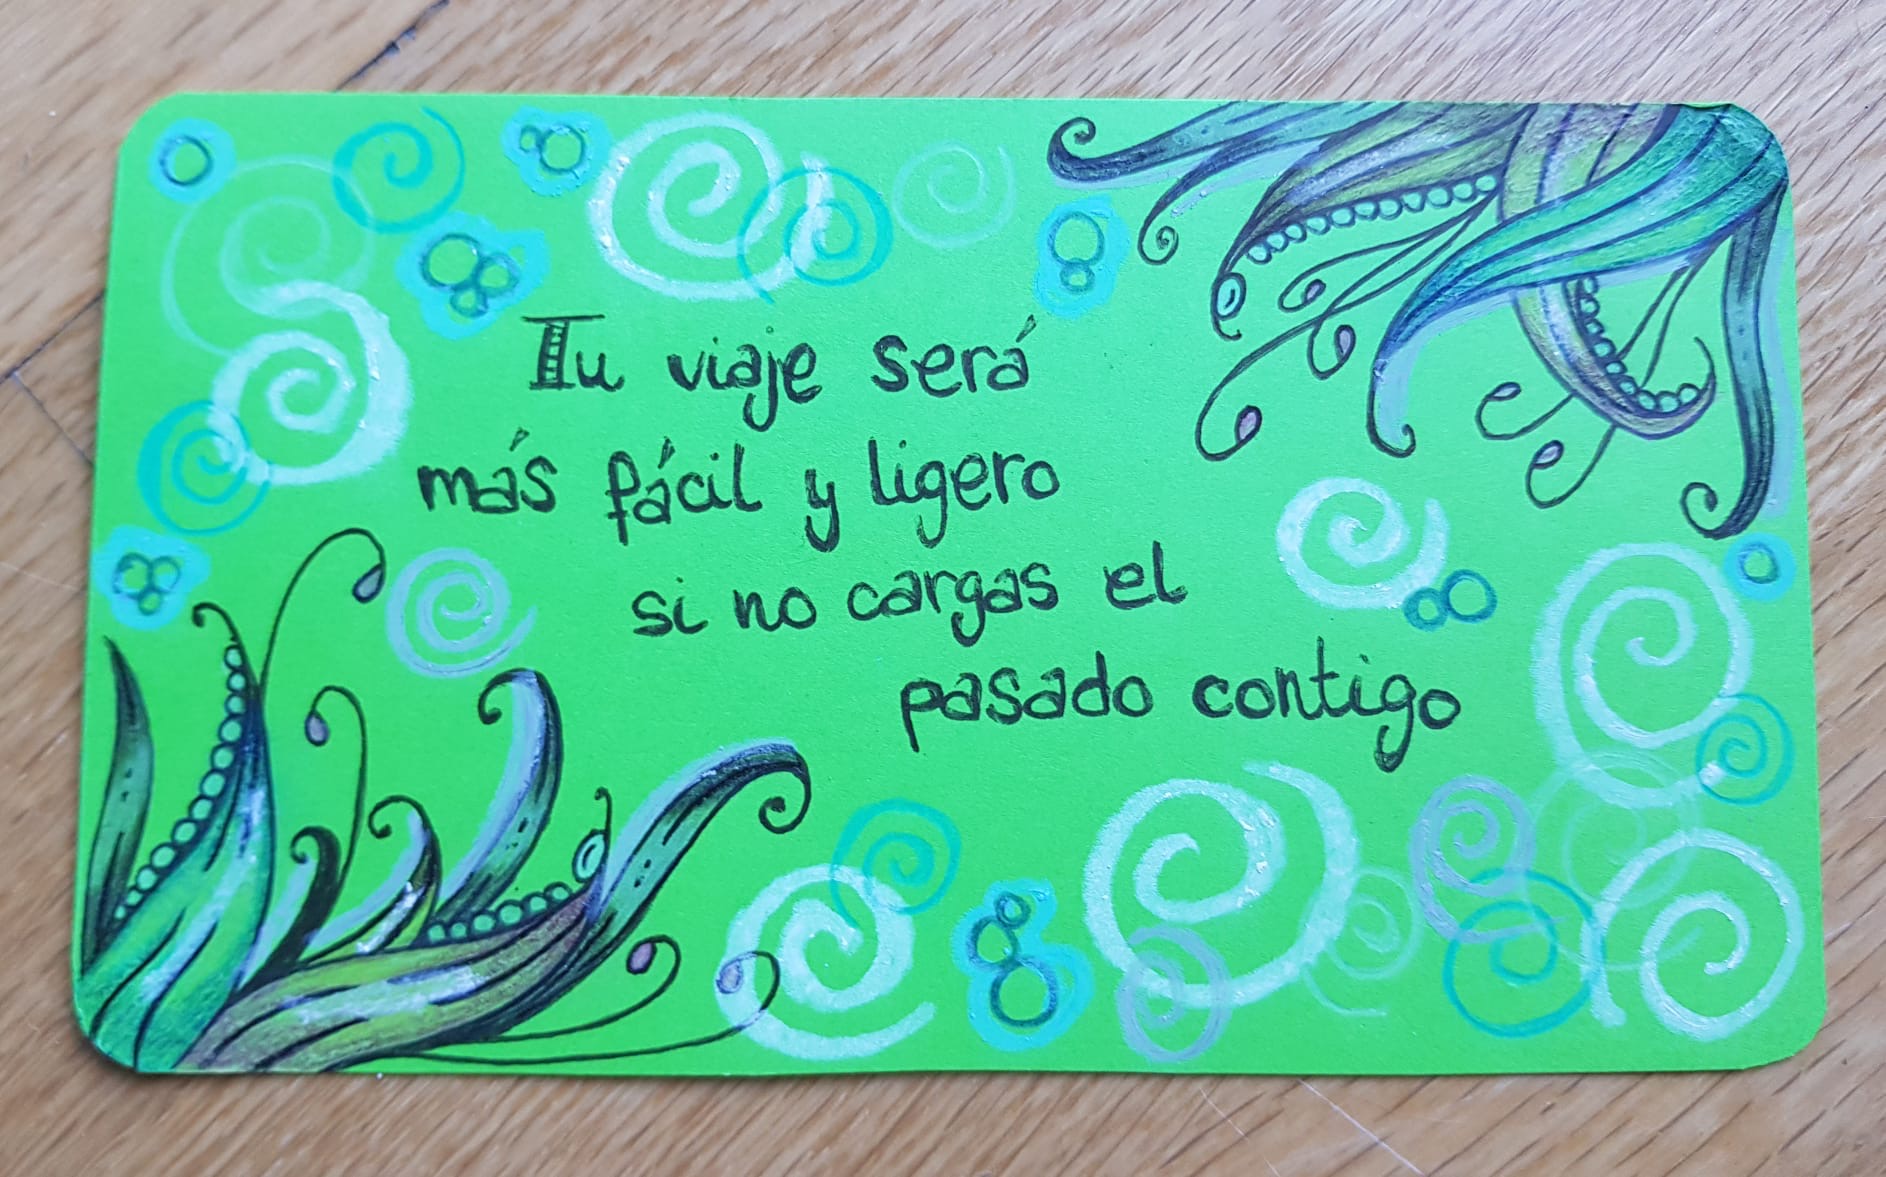 Tu viaje será
más fácil y ligero
si no cargas el
pasado contigo